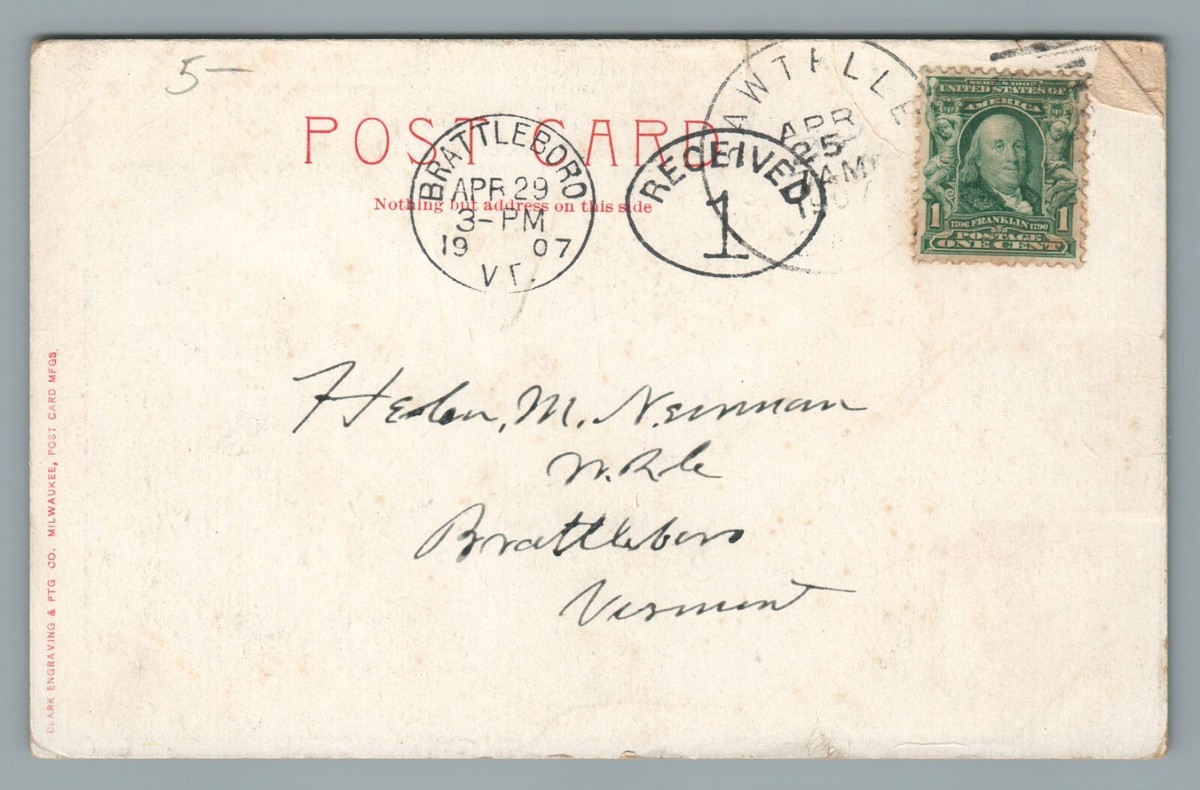 5-
POST CARD
Nothing but address on this side
BRATTLEBORO
APR 29
3-PM
19 07
VT.
RECEIVED
1
APR
25
AM
1907
SERIES 1902
UNITED STATES OF
AMERICA
1 1
1706 FRANKLIN 1790
POSTAGE
ONE CENT
Helen, M. Newman
Brattleboro
Vermont
CLARK ENGRAVING & PTG CO. MILWAUKEE, POST CARD MFGS.